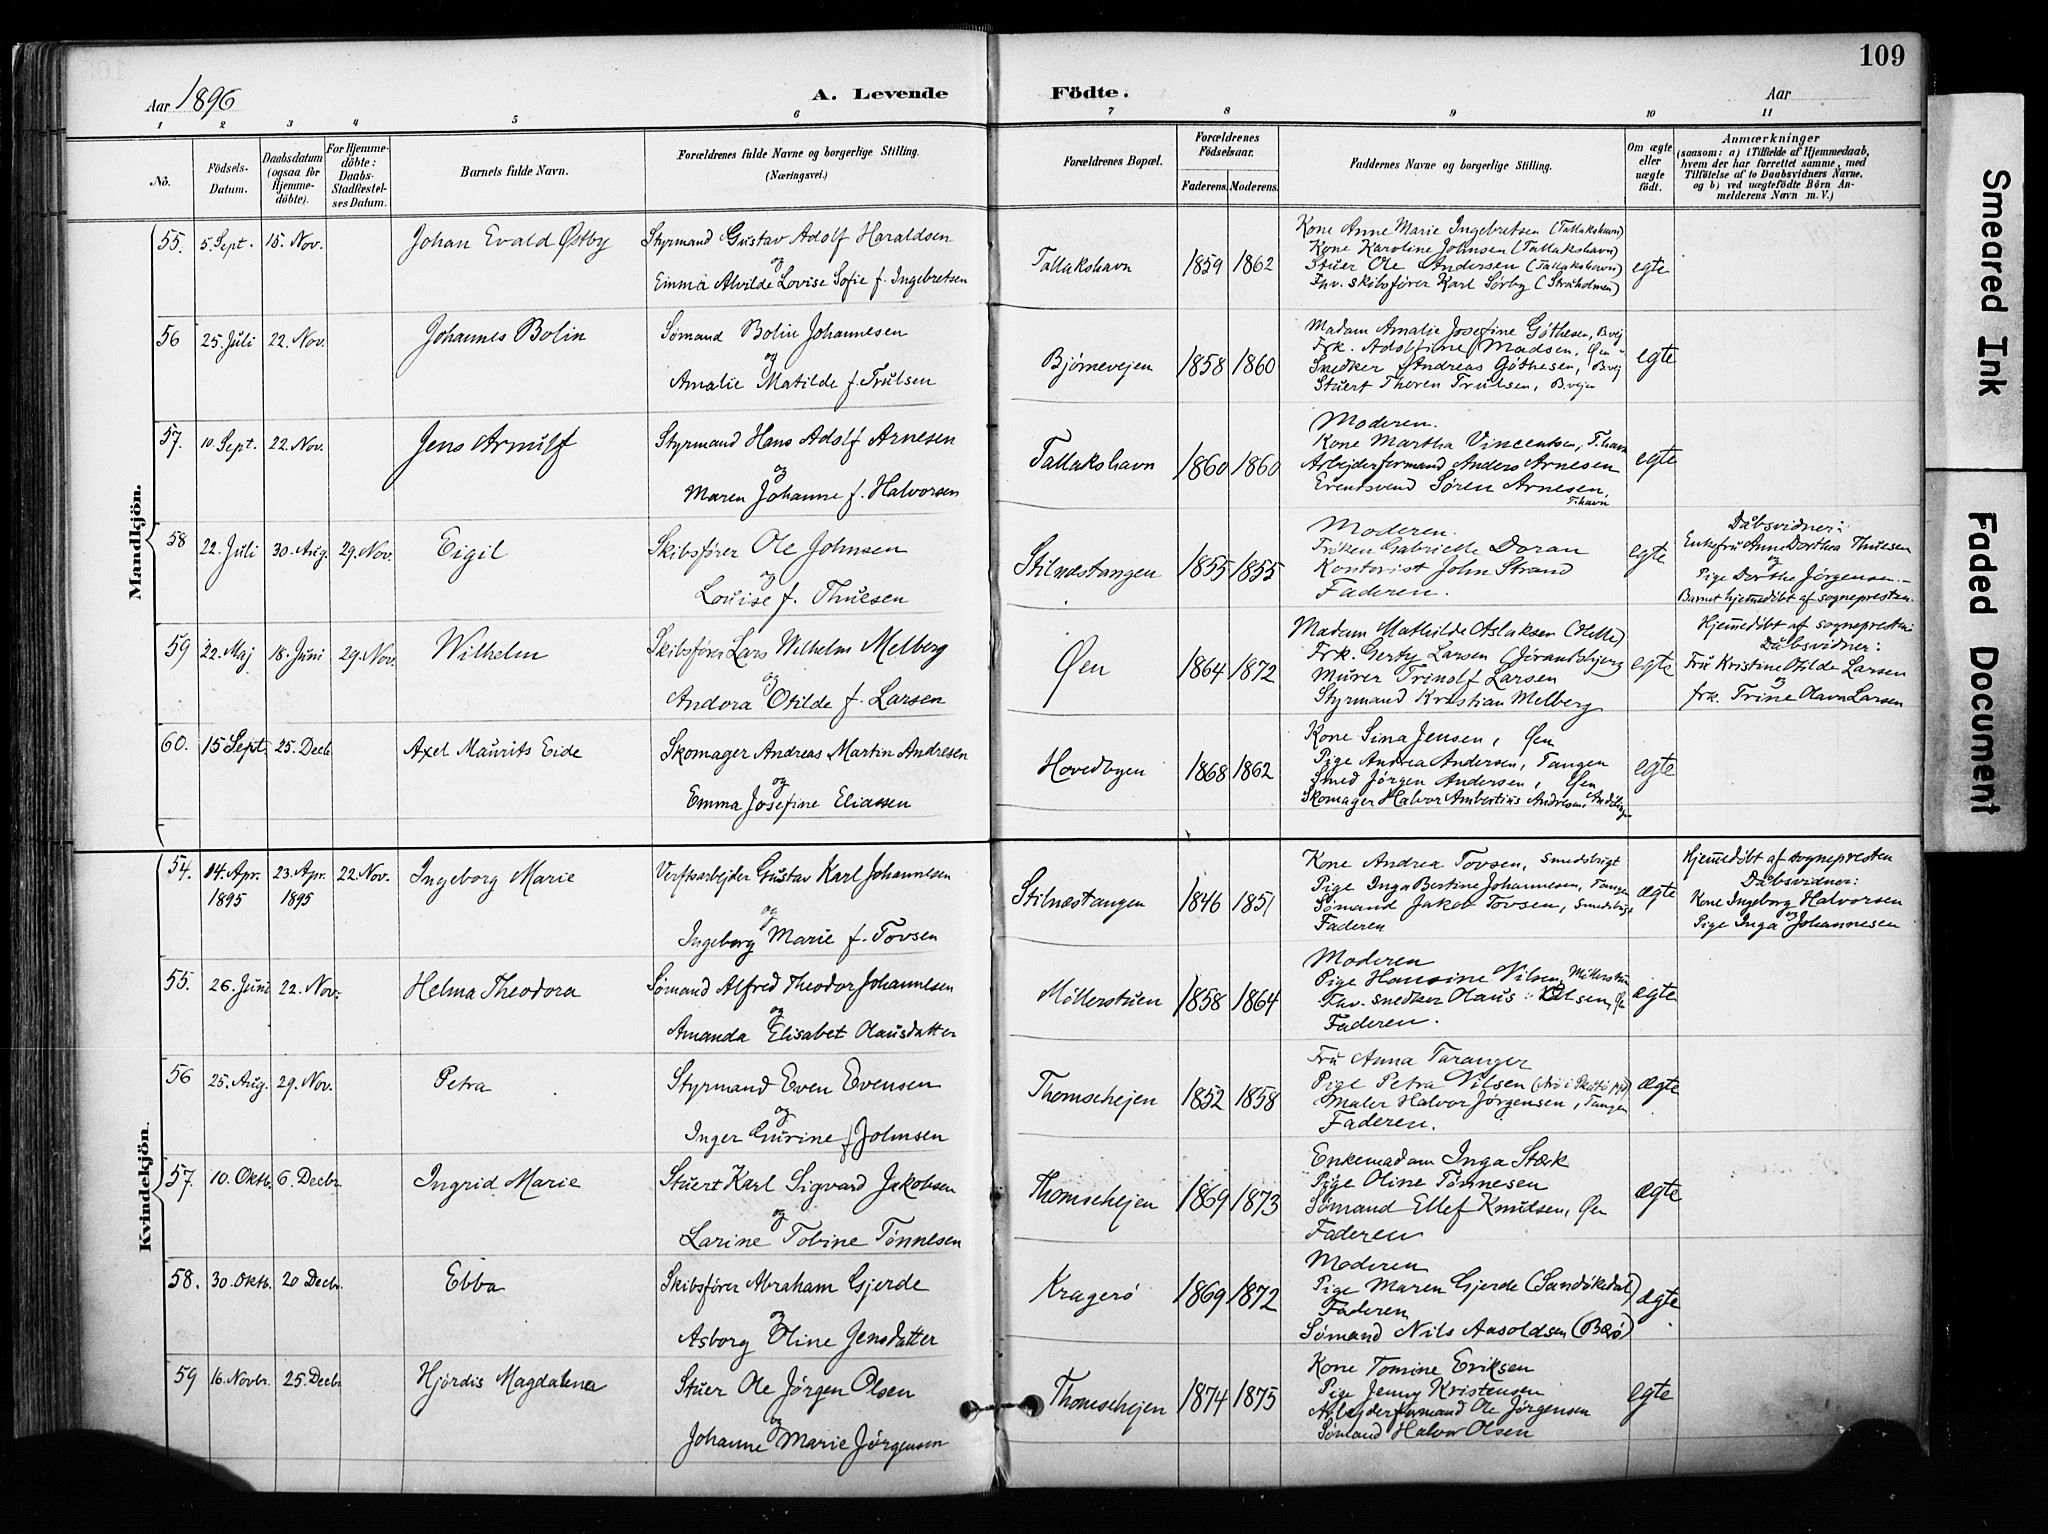 109
Aar 1896
A. Levende Födte.
Aar
1 2 3 4 5 6 7 8 9 10 11
No.
Födsels-Datum.
Daabsdatum (ogsaa for Hjemmedöbte).
For Hjemmedöbte: Daabs-Stadfæstelses Datum.
Barnets fulde Navn.
Forældrenes fulde Navne og borgerlige Stilling.
(Næringsvei.)
Forældrenes Bopæl.
Forældrenes Födselsaar.
Faderens. Moderens.
Faddernes Navne og borgerlige Stilling.
Om ægte eller uægte födt.
Anmærkninger
(saasom: a) i Tilfælde af Hjemmedaab, hvem der har forrettet samme, med Tilföielse af to Daabsvidners Navne, og b) ved uægtefödte Börn Anmelderens Navn m. V.)
Mandkjön.
55. 5. Sept. 15. Nov. Johan Evald Østby
Styrmand Gustav Adolf Haraldsen
og
Emma Alvilde Lovise Sofie f. Ingebretsen
Tallakshavn 1859 1862
Kone Anne Marie Ingebretsen (Tallakshavn)
Kone Karoline Johnsen (Tallakshavn)
Stuer Ole Andersen (Tallakshavn)
Fhv. skibsfører Karl Sørby (Struholmen)
egte
56 25. Juli 22. Nov. Johannes Bolin
Sømand Bolin Johannesen
og
Amalie Matilde f. Trulsen
Bjørnevejen 1858 1860
Madam Amalie Josefine Gøthesen, Bvej
Frk. Adolfine Madsen, Øen
Snedker Andreas Gøthesen, Bvej
Stuert Thoren Trulsen, Bvejen
egte
57. 10. Sept. 22. Nov. Jens Arnulf
Styrmand Hans Adolf Arnesen
og
Maren Johanne f. Halvorsen
Tallakshavn 1860 1860
Moderen.
Kone Martha Vincentsen, T.havn
Arbejderformand Anders Arnesen
Svend Søren Arnesen,
T.havn
egte
58 22. Juli 30. Aug. 29. Nov. Eigil
Skibsfører Ole Johnsen
og
Louise f. Thuesen
Stilnæstangen 1855 1855
Moderen.
Frøken Gabrielle Doran
Kontorist John Strand
Faderen.
egte
Dåbsvidner:
Enkefru Anne Dorthea Thuesen
og
Pige Dorthe Jørgensen.-
Barnet hjemmedøbt af sognepresten.
59 22. Maj 18. Juni 29. Nov. Wilhelm
Skibsfører Lars Wilhelm Melberg
og
Andora Otilde f. Larsen
Øen 1864 1872
Madam Mathilde Aslaksen (Helle)
Frk. Gerty Larsen (Jørandsbjerg
Murer Trinolf Larsen
Styrmand Kristian Melberg
egte
Hjemmedøbt af sognepresten
Dåbsvidner:
Fru Kristine Otilde Larsen
og
frk. Trine Olava Larsen
60. 15 Sept. 25. Decb. Axel Maurits Eide
Skomager Andreas Martin Andresen
og
Emma Josefine Eliassen
Hovedbyen 1868 1862
Kone Sina Jensen, Øen
Pige Andrea Andersen, Tangen
Smed Jørgen Andersen, Øen
Skomager Halvor Ambertius Andresen
egte
Kvindekjön.
54. 14. Apr. 1895 23. Apr. 1895 22. Nov. Ingeborg Marie
Verftsarbejder Gustav Karl Johannesen
og
Ingeborg Marie f. Tovsen
Stilnæstangen 1846 1851
Kone Andrea Tovsen, Smedsbrigt
Pige Inga Bertine Johannesen, Tangen
Sømand Jakob Tovsen, Smedsbrigt
Faderen
ægte
Hjemmedøbt af sognepresten
Dåbsvidner:
Kone Ingeborg Halvorsen
og
Pige Inga Johannesen
55. 26. Juni 22. Nov. Helma Theodora
Sømand Alfred Theodor Johannesen
og
Amanda Elisabet Olausdatter
Møllerstuen 1858 1864
Moderen
Pige Hansine Nilsen, Møllerstuen
Fhv. snedker Olaus Olsen, Øen
Faderen.
egte
56 25. Aug. 29. Nov. Petra
Styrmand Even Evensen
og
Inger Gurine f. Johnsen
Thomschejen 1852 1858
Fru Anna Taranger
Pige Petra Nilsen
Maler Halvor Jørgensen, Tangen
Faderen.
ægte
57. 10. Oktb. 6. Decbr. Ingrid Marie
Stuert Karl Sigvard Jakobsen
og
Larine Tobine Tönnesen
Thomschejen 1869 1873
Enkemadam Inga Stærk
Pige Oline Tönnesen
Sømand Ellef Knudsen, Øen
Faderen
ægte
58. 30. Oktb. 20 Decbr. Ebba
Skibsfører Abraham Gjerde
og
Asborg Oline Jensdatter
Kragerø 1869 1872
Moderen
Pige Maren Gjerde (Sandøkedal)
Faderen
Sømand Nils Aasoldsen (Bærø)
ægte
59 16. Novbr. 25. Decbr. Hjørdis Magdalena
Stuer Ole Jørgen Olsen
og
Johanne Marie Jørgensen
Thomschejen 1874 1875
Kone Tomine Eriksen
Pige Jenny Kristensen
Arbejderformand Ole Jørgensen
Sømand Halvor Olsen
egte
Smeared Ink
Faded Document